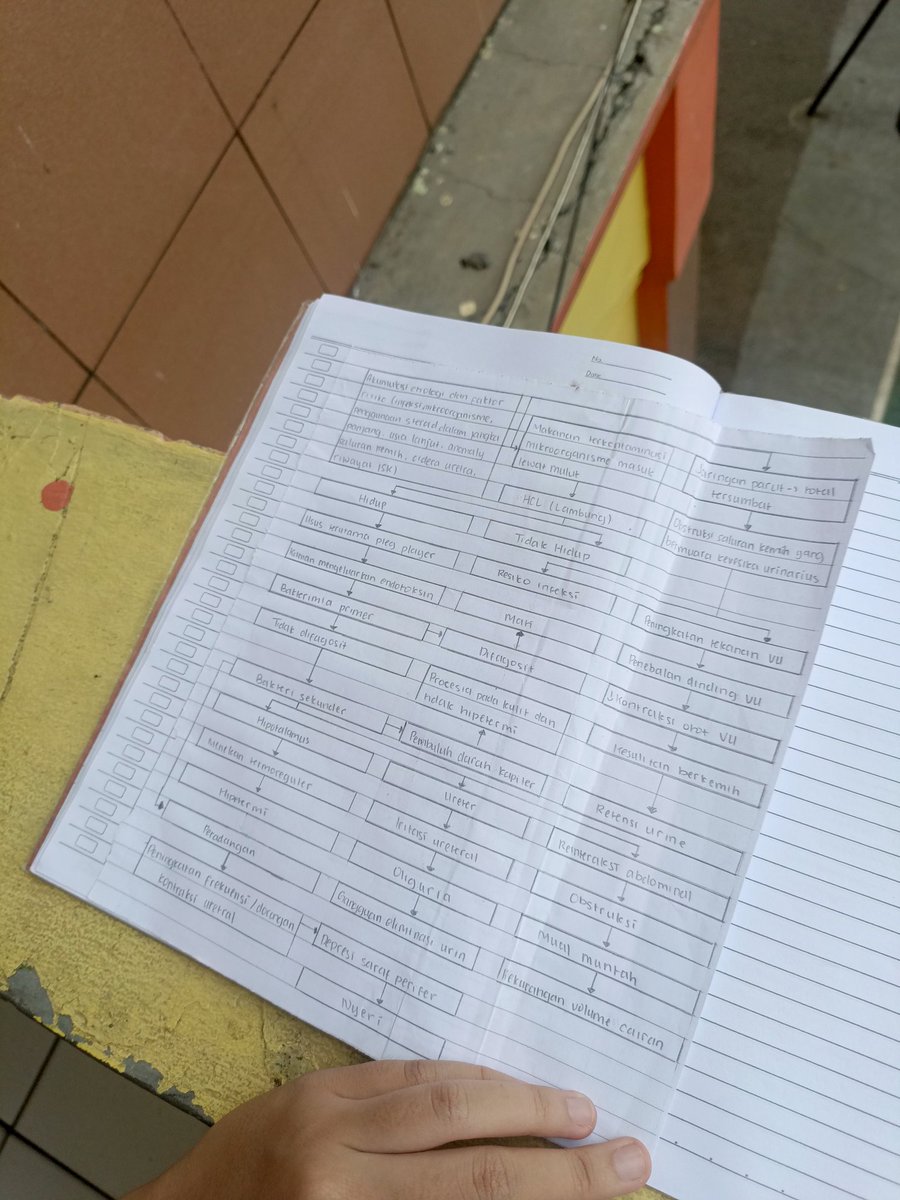 No
Date
Akumulasi etiologi dan faktor
risiko (infeksi mikroorganisme,
penggunaan steroid dalam jangka
panjang, usia lanjut, anomaly
saluran kemih, cidera uretra,
riwayat ISK)
Hidup
Usus terutama pleg player
Kuman mengeluarkan endotoksin
Bakterimia primer
Tidak difagosit
Bakteri sekunder
Hipotalamus
Menekan termoreguler
Hipertermi
Peradangan
Peningkatan frekuensi/dorongan
kontraksi uretral
Makanan terkontaminasi
mikroorganisme masuk
lewat mulut
HCL (Lambung)
Tidak Hidup
Resiko infeksi
Mati
Difagosit
Procesia pada kulit dan
tidak hipetermi
Pembuluh darah kapiler
Ureter
Iritasi ureteral
Oliguria
Gangguan eliminasi urin
Depresi saraf perifer
Nyeri
Jaringan parut → total
tersumbat
Obstruksi saluran kemih yang
bermuara kevesika urinarius
Peningkatan tekanan VU
Penebalan dinding VU
kontraksi otot VU
Kesulitan berkemih
Retensi urine
Reinteraksi abdominal
Obstruksi
Mual muntah
Kekurangan volume cairan